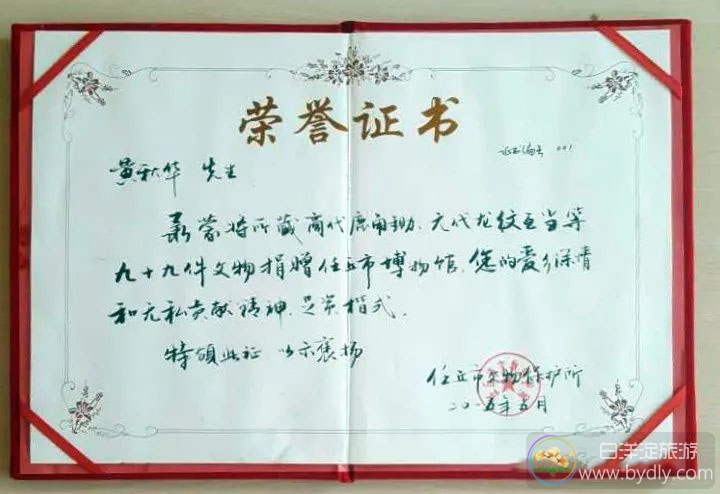 荣誉证书
证书编号 001
黄秋华 先生
承蒙将所藏商代鹿角锄、元代龙纹瓦当等
九十九件文物捐赠任丘市博物馆，您的爱乡深情
和无私贡献精神，足常楷式。
特颁此证 以示褒扬
任丘市文物保护所
二〇一五年五月
白洋淀旅游
www.bydly.com